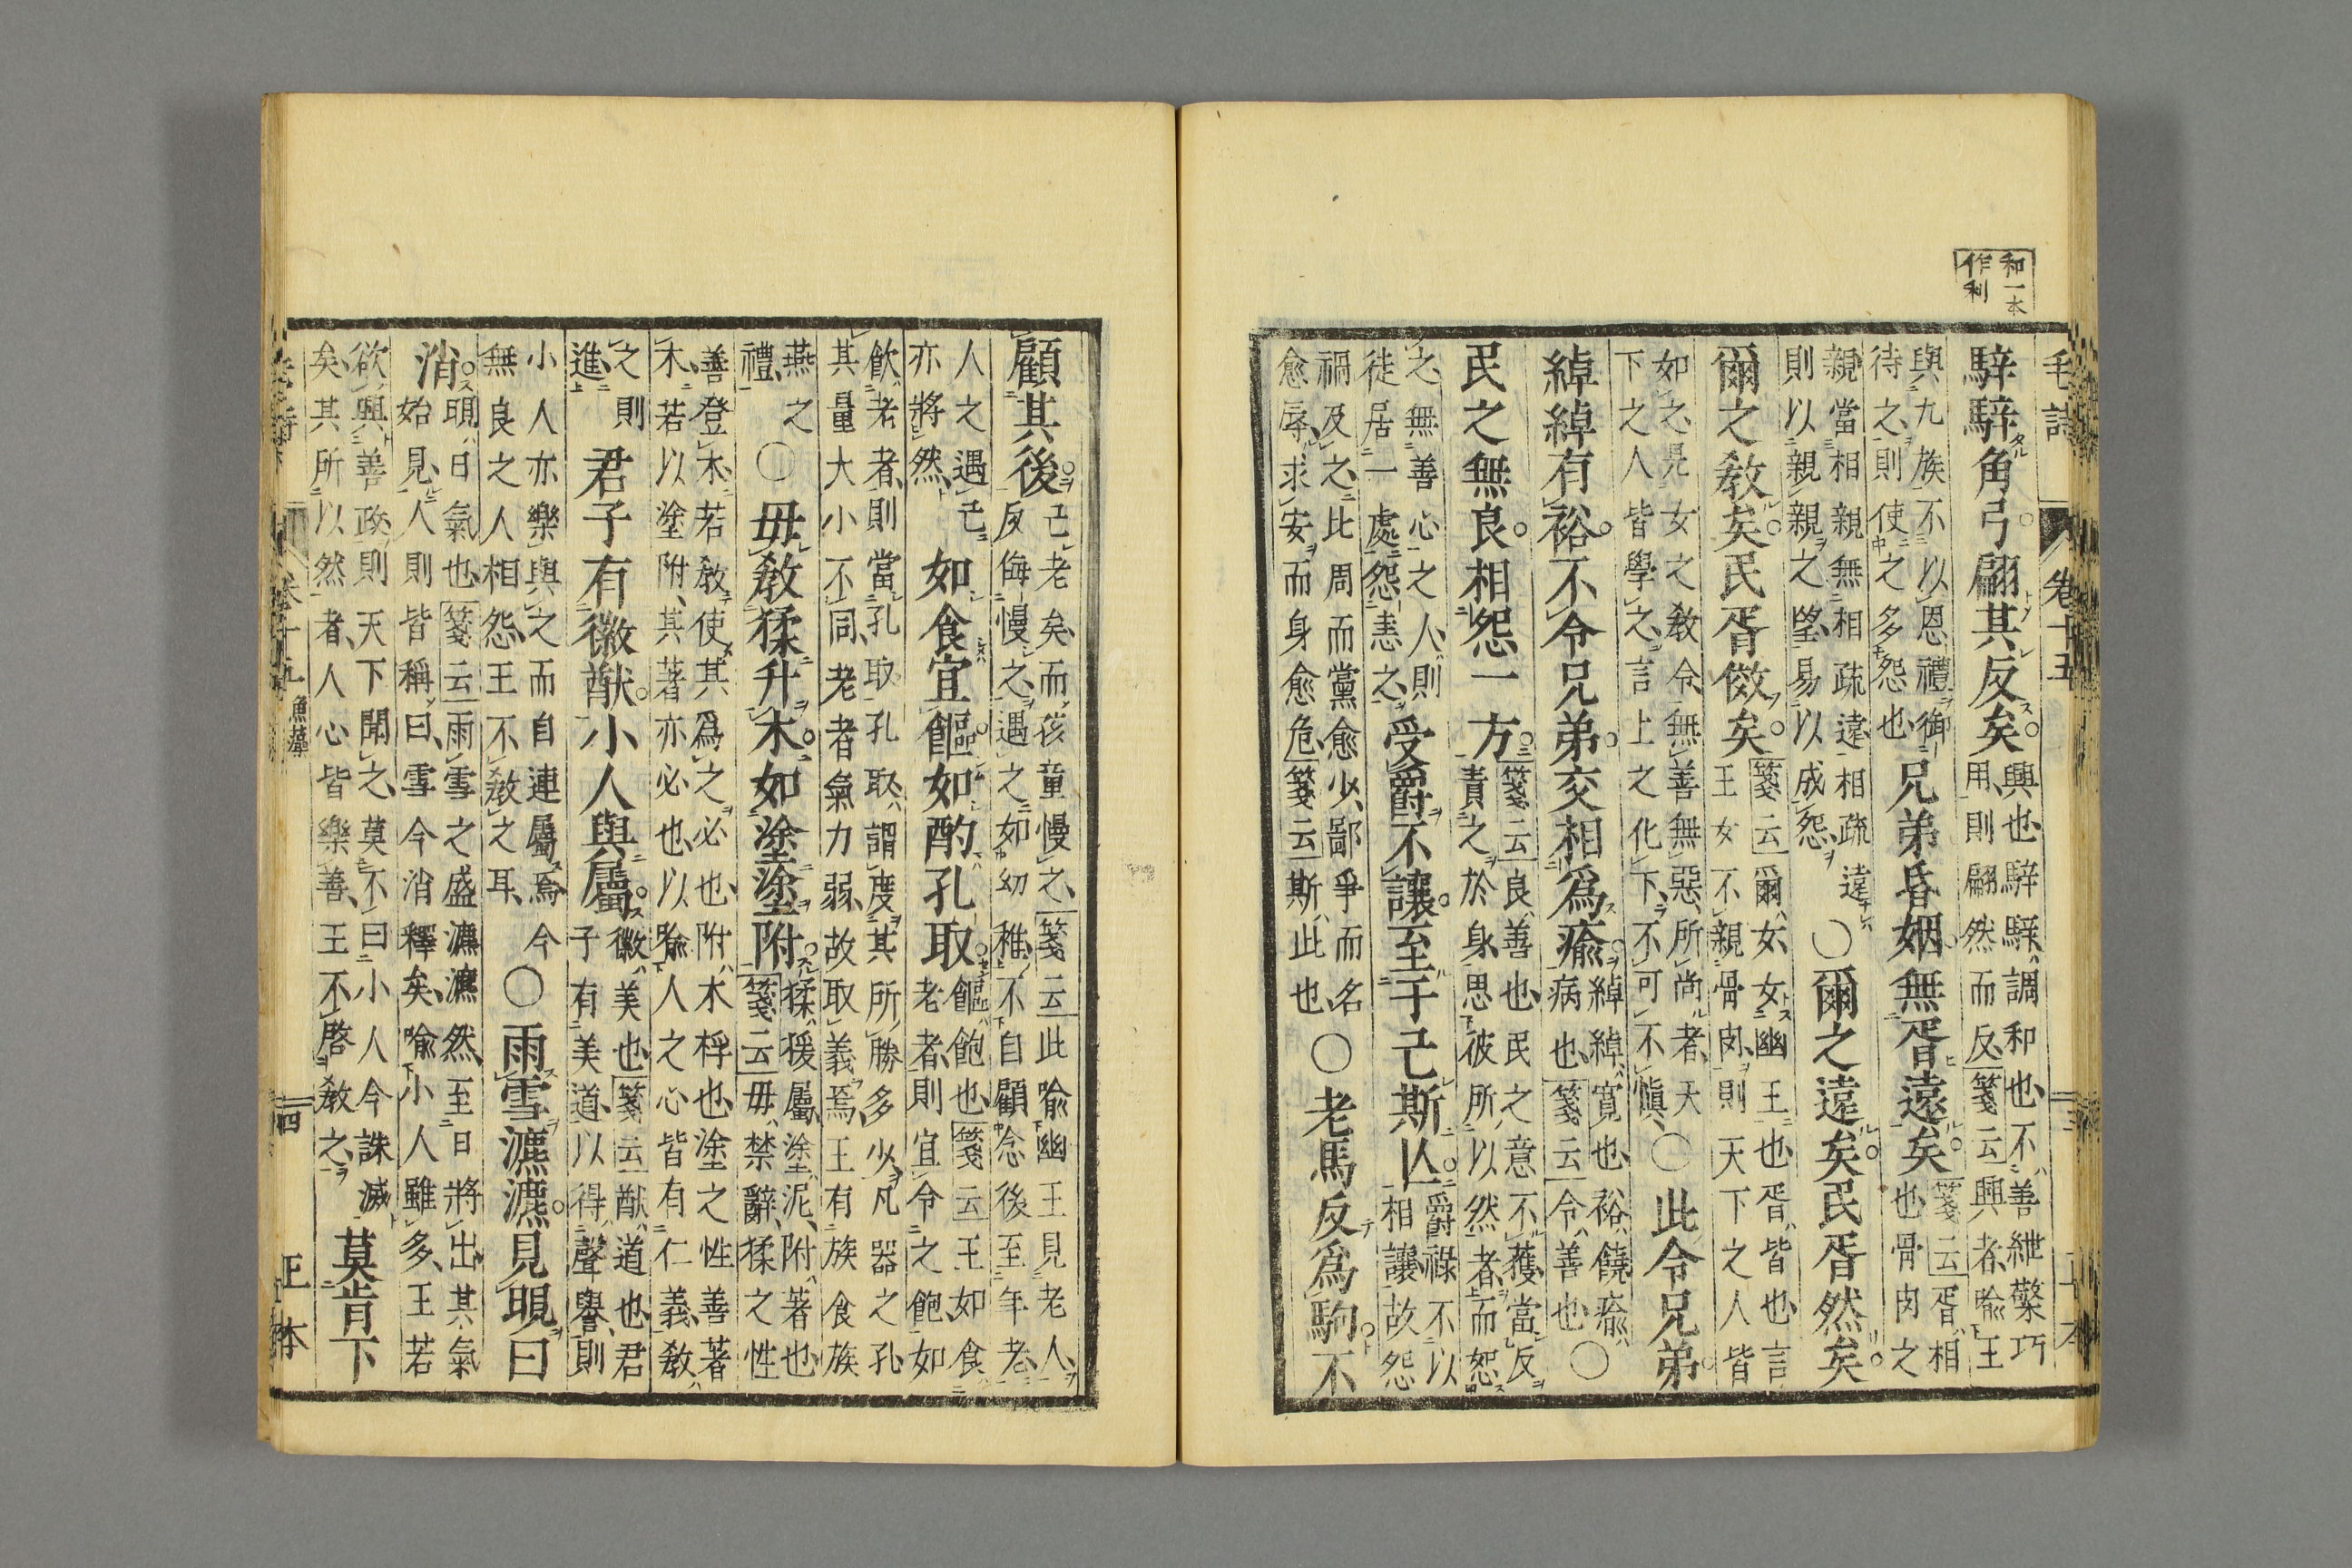 和一本作利
毛詩 卷十五 三 正本
騂騂角弓翩其反矣興也騂騂調和也不善紲檠巧用則翩然而反箋云興者喩王
與九族不以恩禮御待之則使之多怨也兄弟昏姻無胥遠矣箋云胥相也骨肉之
親當相親無相疏遠相疏遠則以親親之望易以成怨〇爾之遠矣民胥然矣
爾之敎矣民胥傚矣箋云爾女女幽王也胥皆也言王女不親骨肉則天下之人皆
如之見女之敎令無善無惡所尚者天下之人皆學之言上之化下不可不愼〇此令兄弟
綽綽有裕不令兄弟交相爲瘉綽綽寬也裕饒瘉病也箋云令善也〇
民之無良相怨一方箋云良善也民之意不獲當反責之於身思彼所以然者而恕
之無善心之人則徒居一處怨恚之受爵不讓至于己斯亾爵祿不以相讓故怨
禍及之比周而黨愈少鄙爭而名愈辱求安而身愈危箋云斯此也〇老馬反爲駒不
顧其後已老矣而孩童慢之箋云此喩幽王見老人反侮慢之遇之如幼稚不自顧念後至年老
人之遇己亦將然如食宜饇如酌孔取饇飽也箋云王如食老者則宜令之飽如
飮老者則當孔取孔取謂度其所勝多少凡器之孔其量大小不同老者氣力弱故取義焉王有族食族
燕之禮〇毋敎猱升木如塗塗附猱猨屬塗泥附著也箋云毋禁辭猱之性
善登木若敎使其爲之必也附木桴也塗之性善著木若以塗附其著亦必也以喩人之心皆有仁義敎
之則進君子有徽猷小人與屬徽美也箋云猷道也君子有美道以得聲譽則
小人亦樂與之而自連屬焉今無良之人相怨王不敎之耳〇雨雪瀌瀌見晛曰
消晛日氣也箋云雨雪之盛瀌瀌然至日將出其氣始見人則皆稱曰雪今消釋矣喩小人雖多王若
欲興善政則天下聞之莫不曰小人今誅滅矣其所以然者人心皆樂善王不啓敎之莫肯下
毛詩 卷十五 魚藻 四 正本